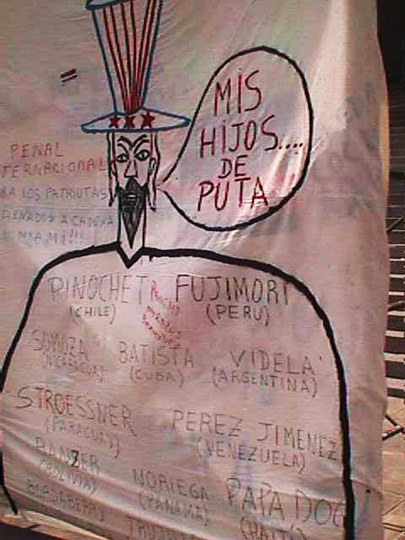 MIS
HIJOS....
DE
PUTA
PENAL
TERNACIONAL
RA LOS PATRIOTAS
DENADOS A CADENA
MIAMI!!!
PINOCHET FUJIMORI
(CHILE) (PERU)
SOMOZA BATISTA VIDELA
(NICARAGUA) (CUBA) (ARGENTINA)
STROESSNER PEREZ JIMENEZ
(PARAGUAY) (VENEZUELA)
BANZER NORIEGA PAPA DOC
(BOLIVIA) (PANAMA) (HAITI)
BORDABERRY
TRUJILLO